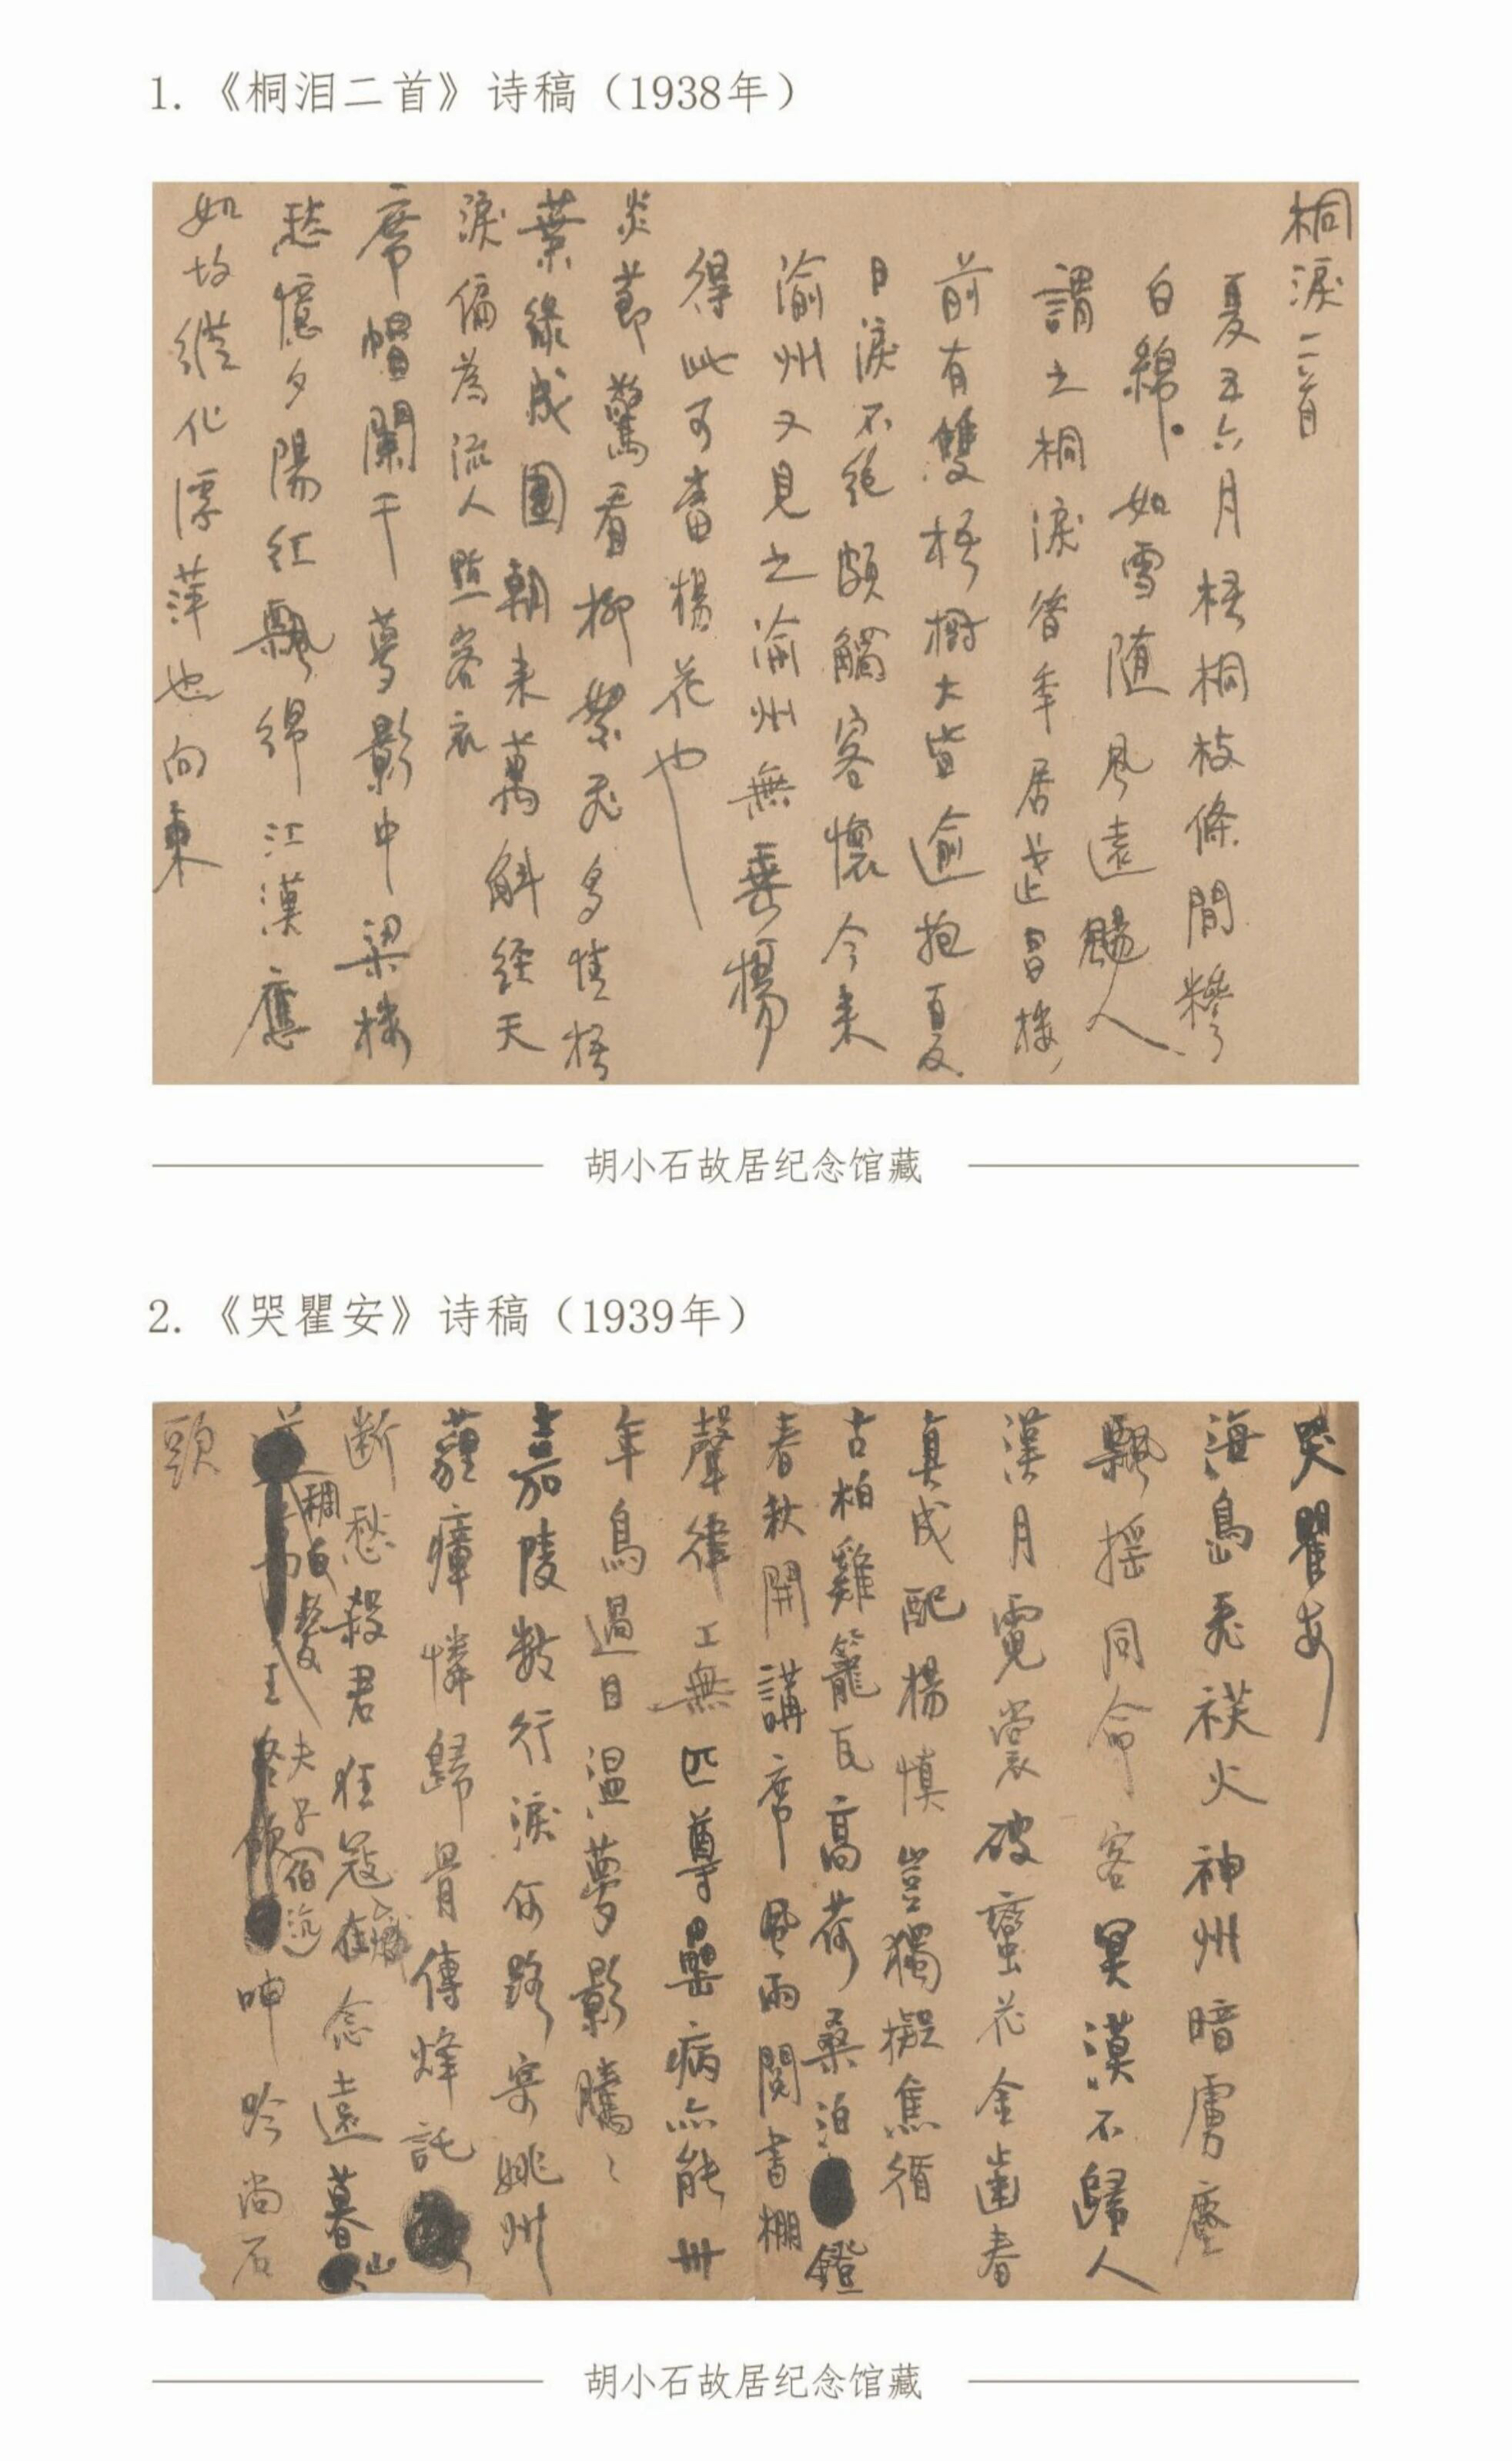 1.《桐泪二首》诗稿（1938年）
桐淚二首
夏五六月梧桐枝條間糝
白綿如雪随風遠颺人
謂之桐淚昔年居武昌樓
前有雙梧樹大皆逾抱夏
日淚不絶頗觸客懷今来
渝州又見之渝州無垂楊
得此可當楊花也
炎節驚看柳絮飛多情梧
葉緑成團朝来萬斛經天
淚偏為流人點客衣
席帽闌干夢影中梁樓
愁憶夕陽紅飄綿江漢應
如故縱化浮萍也向東
胡小石故居纪念馆藏
2.《哭瞿安》诗稿（1939年）
哭瞿安
海島飛祅火神州暗虜塵
飄摇同命客冥漠不歸人
漢月霓裳破蠻花金齒春
真成配楊慎豈獨擬焦循
古柏雞籠瓦高荷桑泊鐙
春秋開講席風雨閱書棚
聲律工無匹尊罍病亦能卌
年鳥過目温夢影騰〻
嘉陵數行淚何路寄姚州
薤瘴憐歸骨傳烽託
断愁殺君狂寇在念遠暮山
稠白髮夫子宿
呻吟尚石
頭
胡小石故居纪念馆藏